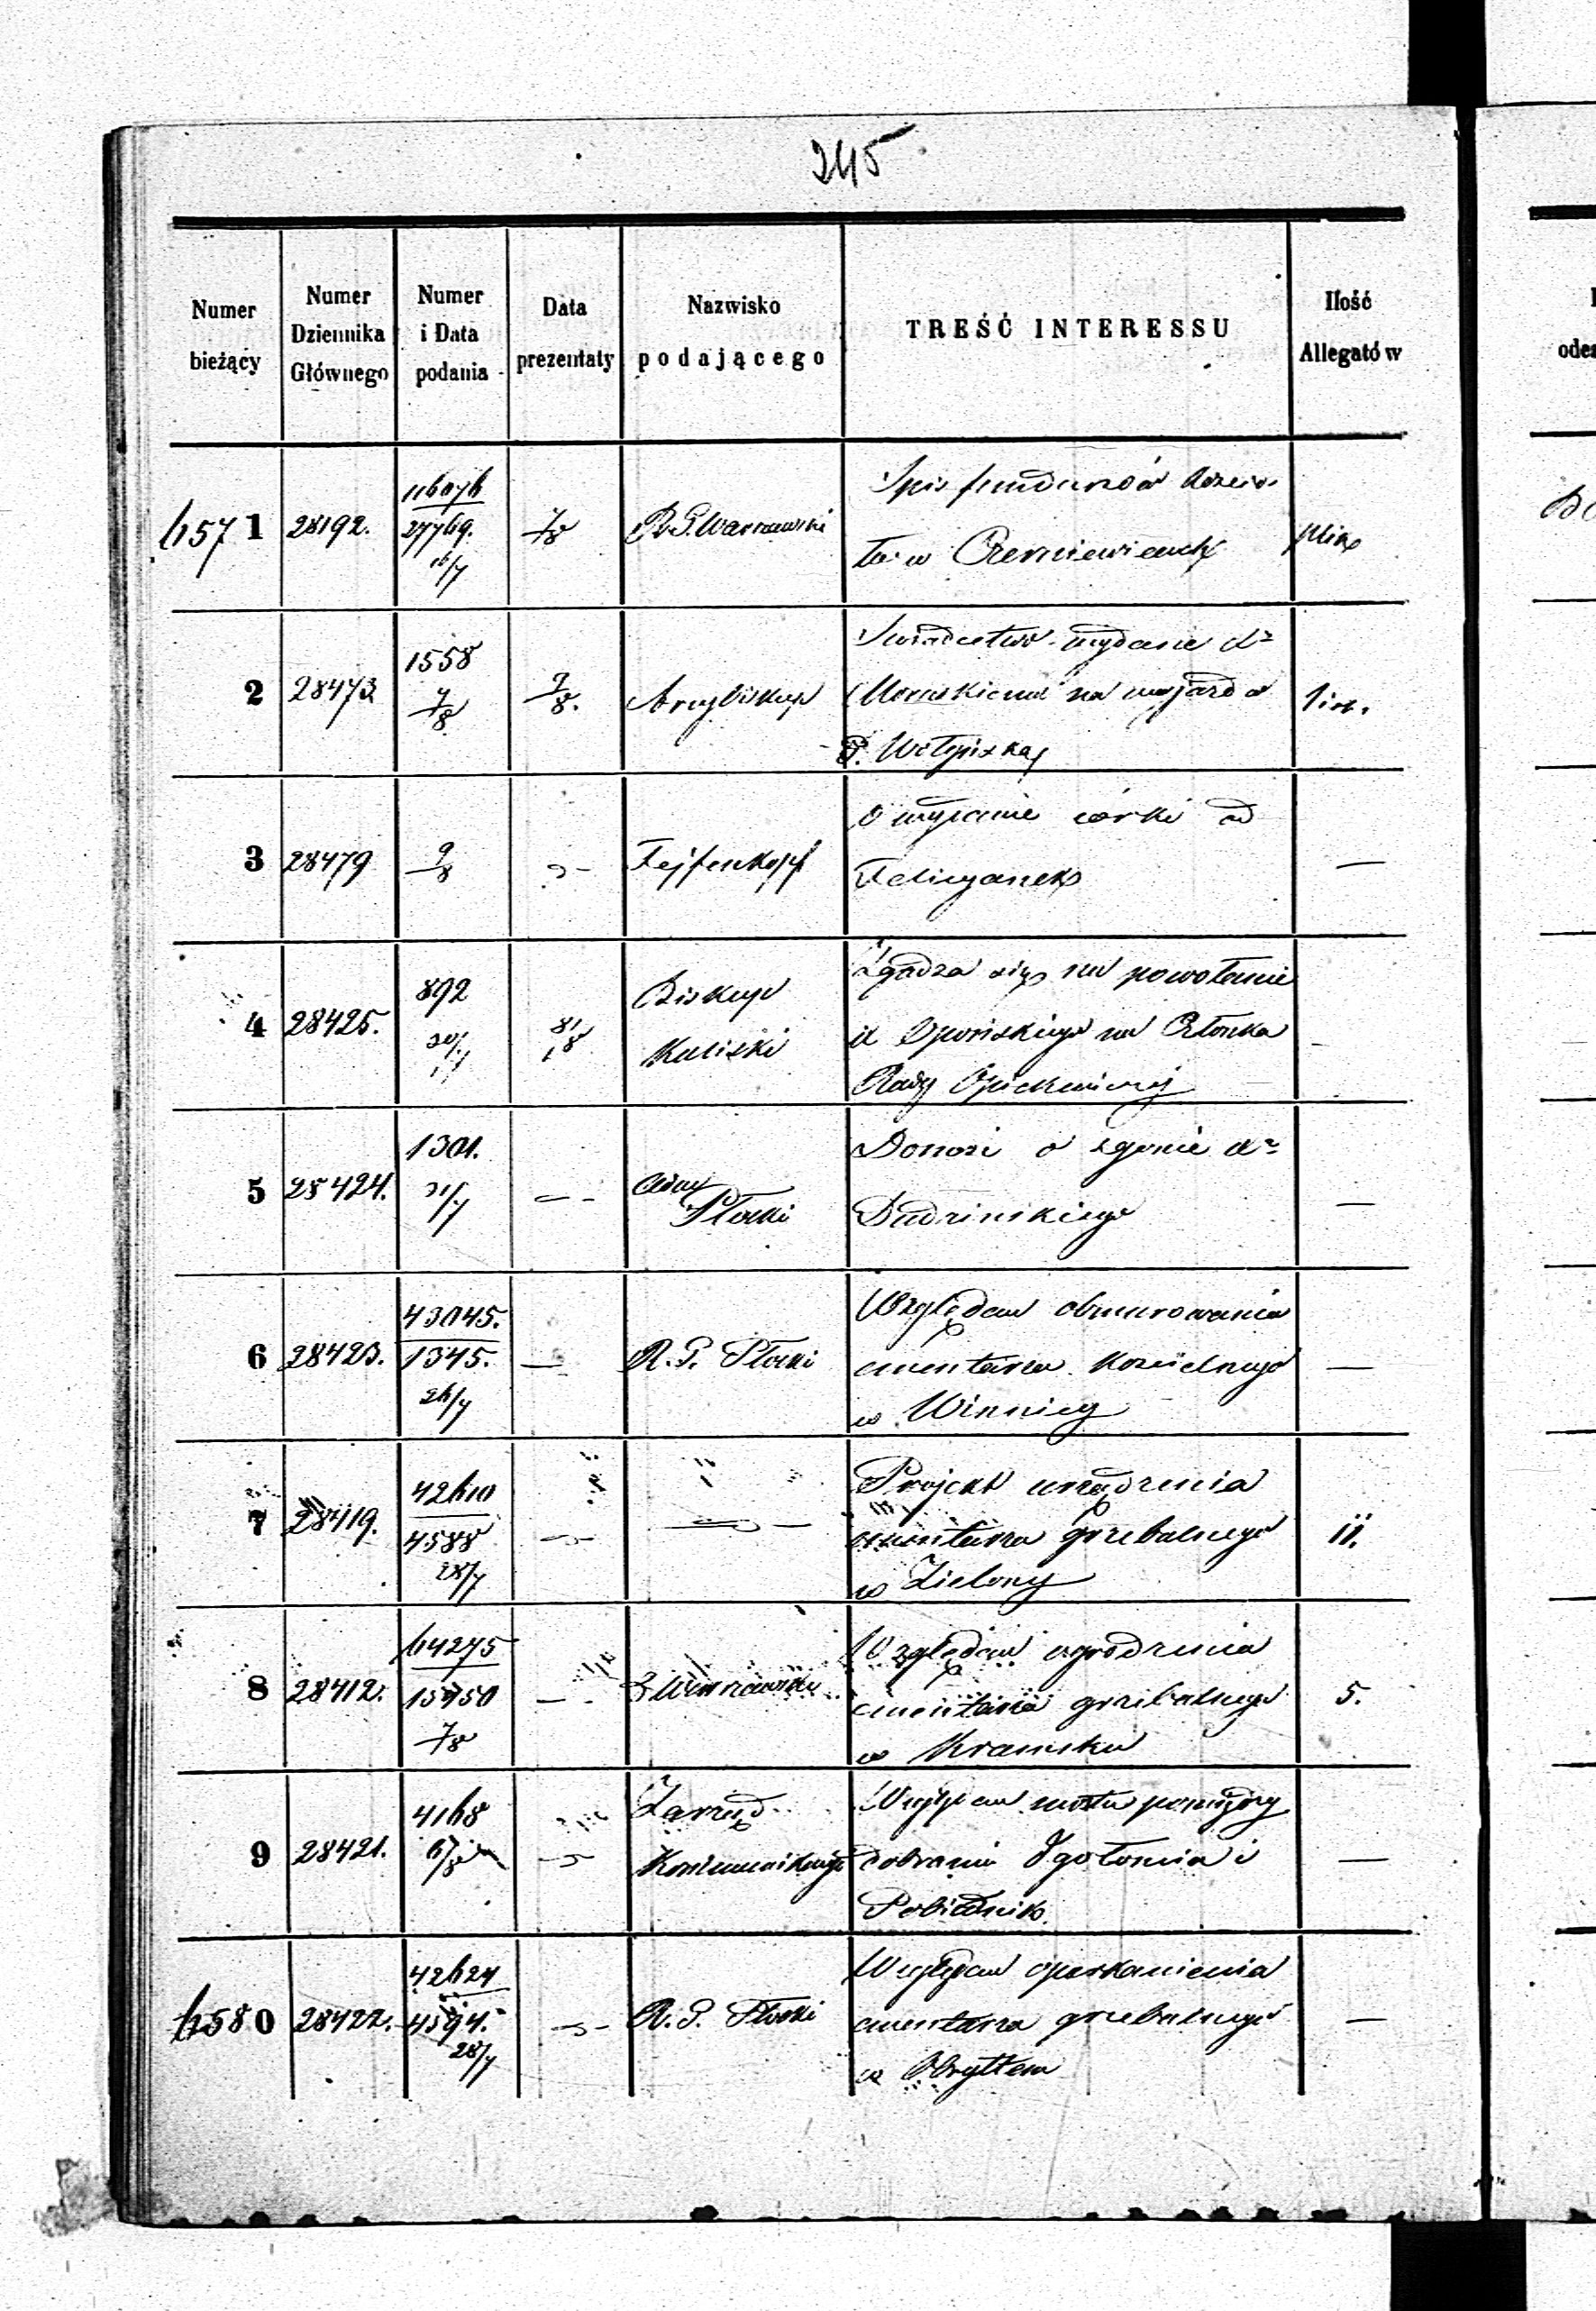 245
Numer bieżący
Numer Dziennika Głównego
Numer i Data podania
Data prezentaty
Nazwisko podającego
TREŚĆ INTERESSU
Ilość Allegatów
6571
28192.
11676
27769.
16/7
7/8
R. G. Warszawski
Spis funduszów
w Czerniewicach
plik
2
28473
1558
7/8
9/8.
Arcybiskup
Świadectwo wydane
na wyjazd
3
28479
9/8
Fejfenkopf
O wypanie córki od
Felicyanek
—
4
28425.
892
30/7
Biskup
Kaliski
Zgadza się na powołanie
na Członka
Rady Opiekuńczej
5
28424.
1301.
31/7
Płocki
Donosi o zgonie
Dudzinskiego
—
6
28423.
43045.
1345.
26/7
—
R. G. Płocki
Względem obmurowania
cmentarza Kościelnego
w Winnicy
—
7
28419.
42610
4588
28/7
Projekt urządzenia
cmentarza grzebalnego
w Zielony
ii.
8
28412.
64275
15450
7/8
Warszawski
Względem ogrodzenia
cmentarza grzebalnego
w Kramsku
5.
9
28421.
4168
6/8
Zarząd
Względem mostu pomiędzy
dobrami Igołomia i
Pobiednik
—
6580
28422.
42624
4594.
28/7
R. G. Płocki
Względem oparkanienia
cmentarza grzebalnego
w Obrytem
—